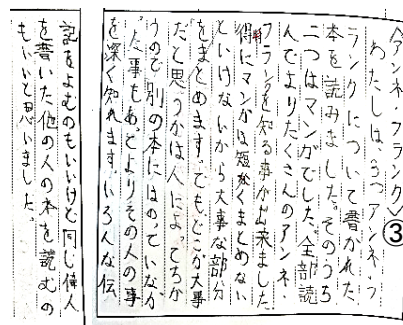 ③
〈アンネ・フランク〉
わたしは、3つアンネ・フ
ランクについて書かれた
本を読みました。そのうち
二つはマンガでした。全部読
んでよりたくさんのアンネ・
フランクを知る事が出来ました。
特にマンガは短かくまとめない
といけないから大事な部分
をまとめます。でもどこが大事
だと思うかは人によってちが
うので別の本にはのっていなか
った事もあってよりその人の事
を深く知れます。いろんな伝
記をよむのもいいけど同じ偉人
を書いた他の人の本を読むの
もいいと思いました。